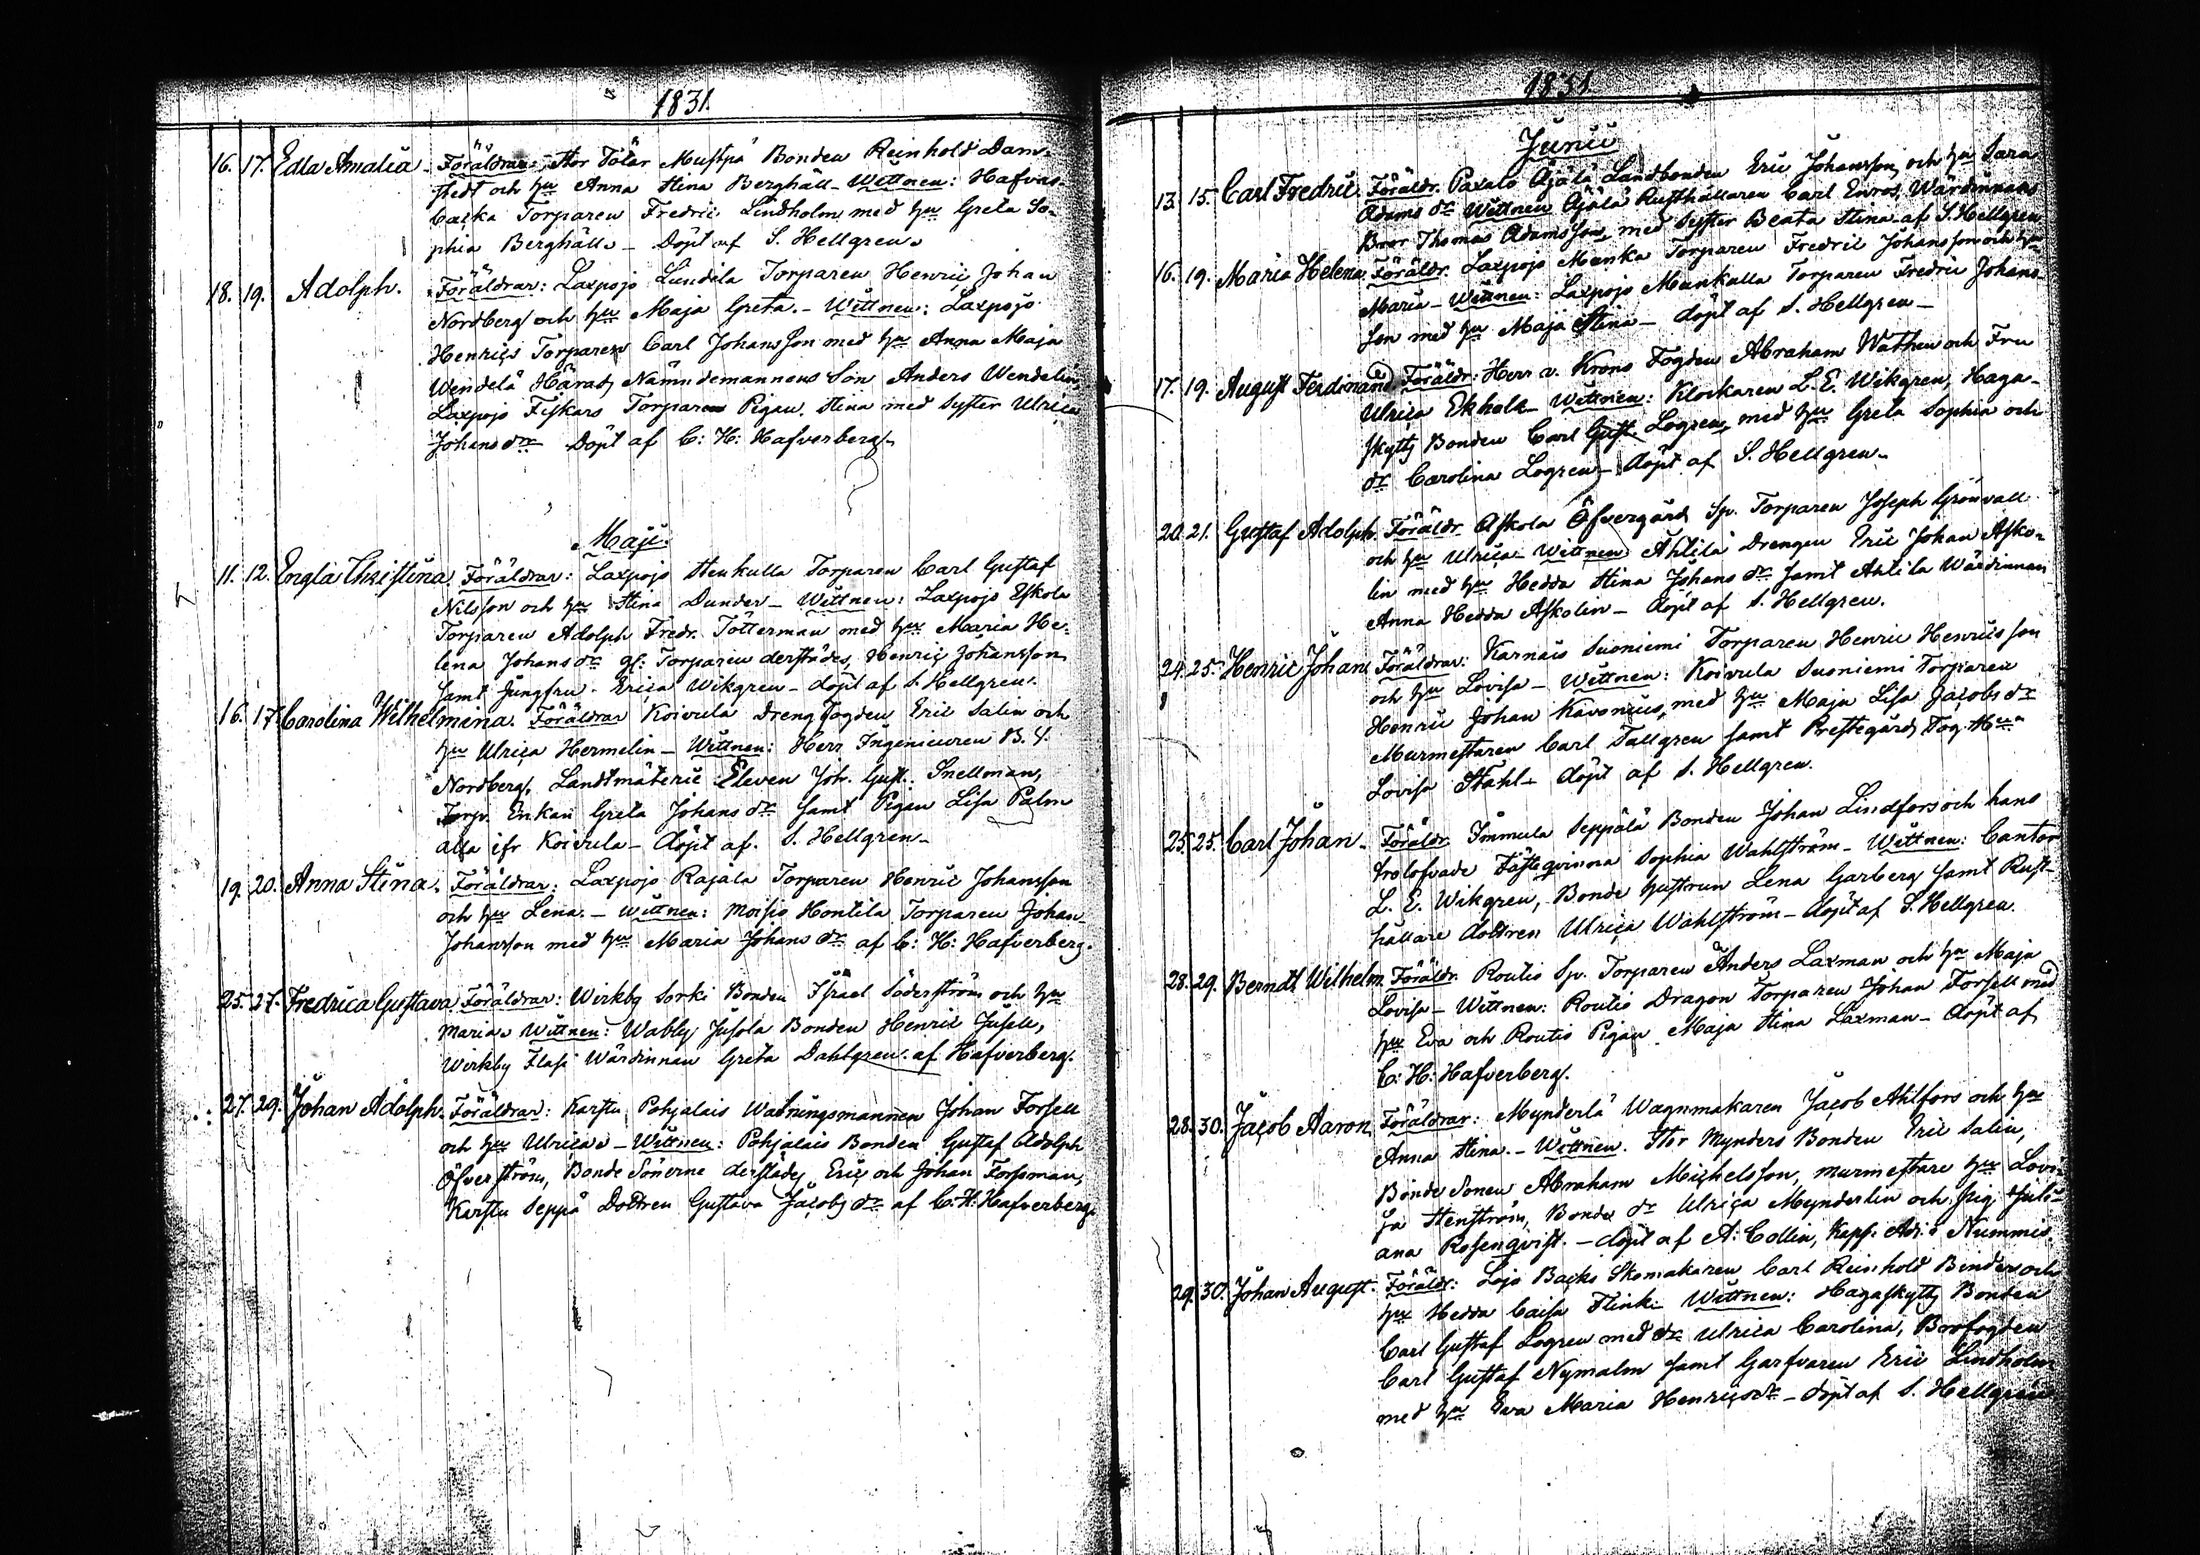 1831.
16. 17. Edla Amalia. Föräldrar: Stor Tötar Mustpä Bonden Reinhold Dam-
stedt och hu Anna Stina Berghäll – Wittnen: Hafvas-
backa Torparen Fredric Lindholm med hu Greta So-
phia Berghäll – Döpt af S. Hellgren.
18. 19. Adolph. Föräldrar: Laxpojo Lundila Torparen Henric Johan
Nordberg och hu Maja Greta. – Wittnen: Laxpojo
Henrics Torparen Carl Johansson med hu Anna Maja
Wendelä Härads Nämndemannens Son Anders Wendelin,
Laxpojo Fiskars Torparen Pigan. Stina med Syster Ulrica
Johansdr Döpt af C: H: Hafverberg.
Maji.
11. 12. Engla Christina. Föräldrar: Laxpojo Stenkulla Torparen Carl Gustaf
Nilsson och hu Stina Dunder – Wittnen: Laxpojo Eskola
Torparen Adolph Fredr. Tötterman med hu Maria He-
lena Johansdr gl: Torparen derstädes, Henric Johansson
samt Jungfru. Erica Wikgren – döpt af S. Hellgren.
16. 17. Carolina Wilhelmina. Föräldrar Koivula Drengfogden Eric Salin och
hu Ulrica Hermelin – Wittnen: Herr Ingenieuren B. Y.
Nordberg, Landtmäterie Eleven Joh. Gust. Snellman,
Torp. Enkan Greta Johansdr samt Pigan Lisa Palm
alla ifr Koivula – döpt af. S. Hellgren –
19. 20. Anna Stina. Föräldrar: Laxpojo Rajala Torparen Henric Johansson
och hu Lena. – Wittnen: Moisio Hontila Torparen Johan
Johansson med hu Maria Johansdr af C: H: Hafverberg.
25. 27. Fredrica Gustava. Föräldrar: Wirkby Sorki Bonden Israel Söderström och hu
Maria Wittnen: Wabby Jusola Bonden Henric Jusell,
Werkby Flasi Wärdinnan Greta Dahlgren. af Hafverberg.
27. 29. Johan Adolph. Föräldrar: Karstu Pohjalais Watningsmannen Johan Forsell
och hu Ulrica – Wittnen: Pohjalais Bonden Gustaf Adolph
Öfverström, Bonde Sönerne derstädes Eric och Johan Forssman,
Karstu Seppä Dottren Gustava Jacobsdr af C. H. Hafverberg.
1831.
Junii
13. 15. Carl Fredric. Föräldr. Paxalo Ojala Landbonden Eric Johansson, och hu Sara
Adamsdr Wittnen Ojala Rusthållaren Carl Enros, Wärdinnans
Bror Thomas Adamsson, med Syster Beata Stina af S. Hellgren
16. 19. Maria Helena. Föräldr. Laxpojo Munka Torparen Fredric Johansson och hu
Maria – Wittnen: Laxpojo Munkulla Torparen Fredric Johans-
son med hu Maja Stina – döpt af S. Hellgren –
17. 19. August Ferdinand Föräldr: Herr v. Krono Fogden Abraham Wathen och Fru
Ulrica Ekholm – Wittnen: Klockaren L. E. Wikgren, Haga-
skytts Bonden Carl Gust. Logren, med hu Greta Sophia och
dr Carolina Logren – döpt af S. Hellgren –
20. 21. Gustaf Adolph. Föräldr. Askola Öfvergård Sp. Torparen Joseph Grönvall
och hu Ulrica Wittnen Ahtila Drengen Eric Johan Asko-
lin med hu Hedda Stina Johansdr samt Ahtila Wärdinnan
Anna Hedda Askolin – döpt af S. Hellgren.
24. 25. Henric Johan Föräldrar: Karnais Suoniemi Torparen Henric Henricsson
och hu Lovisa – Wittnen: Koivula Suoniemi Torparen
Henric Johan Kavonius, med hu Maja Lisa Jacobsdr
Murmestaren Carl Tallgren samt Prestegårds Fog. Hu
Lovisa Ståhl – döpt af S. Hellgren.
25. 25. Carl Johan. Föräldr. Immula Seppälä Bonden Johan Lindfors och hans
trolofvade Fästeqvinna Sophia Wahlström – Wittnen: Cantor
L. E. Wikgren, Bonde hustrun Lena Garberg samt Rust-
hållare dottren Ulrica Wahlström – döpt af S. Hellgren.
28. 29. Berndt Wilhelm. Föräldr. Routio Sp. Torparen Anders Laxman och hu Maja
Lovisa – Wittnen: Routio Dragon Torparen Johan Forsell med
hu Eva och Routio Pigan Maja Stina Laxman – döpt af
C: H: Hafverberg.
28. 30. Jacob Aaron. Föräldrar: Mynderlä Wagnmakaren Jacob Ahlfors och hu
Anna Stina. – Wittnen. Stor Mynders Bonden Eric Salin,
Bonde Sonen Abraham Michelsson, murmestare hu Lovi-
sa Stenström, Bonde dr Ulrica Mynderlin och pig. Juli-
ana Rosenqvist. – döpt af A: Collin, Kapp: Adj. i Nummis.
29. 30. Johan August. Föräldr: Lojo Backs Skomakaren Carl Reinhold Binders och
hu Hedda Caisa Flink. Wittnen: Hagaskytts Bonden
Carl Gustaf Logren med dr Ulrica Carolina, Bosfogden
Carl Gustaf Nymalm samt Garfvaren Eric Lindholm
med hu Eva Maria Henricsdr – döpt af S. Hellgren